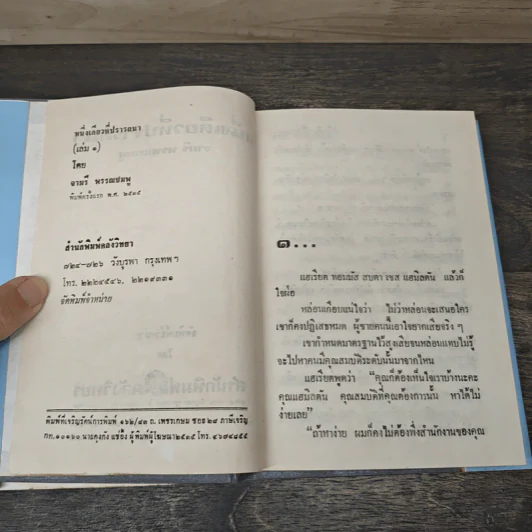 หนึ่งเดียวที่ปรารถนา
(เล่ม ๑)
โดย
จามรี พรรณชมพู
พิมพ์ครั้งแรก พ.ศ. ๒๕๓๕
สำนักพิมพ์คลังวิทยา
๗๒๔-๗๒๖ วังบูรพา กรุงเทพ ฯ
โทร. ๒๒๒๔๕๔๖, ๒๒๑๙๓๓๑
จัดพิมพ์จำหน่าย
พิมพ์ที่เจริญรัตน์การพิมพ์ ๑๖๒/๘๓ ถ. เพชรเกษม ซอย ๒๘ ภาษีเจริญ
กท. ๑๐๑๖๐ ผู้พิมพ์ผู้โฆษณา ๒๕๓๕ โทร. ๔๖๗๔๘๕๕
๑...
แฮเรียต ทอมมัส สบตา เชส แฮมิลตัน แล้วก็
ใจฝ่อ
หล่อนเกือบแน่ใจว่า ไม่ว่าหล่อนจะเสนอใคร
เขาก็คงปฏิเสธหมด ผู้ชายคนนี้เอาใจยากเสียจริง ๆ
เขากำหนดมาตรฐานไว้สูงเสียจนหล่อนแทบไม่รู้
จะไปหาคนมีคุณสมบัติระดับนั้นมาจากไหน
แฮเรียตพูดว่า “คุณก็ต้องเห็นใจเราบ้างนะคะ
คุณแฮมิลตัน คุณสมบัติที่คุณต้องการนั้น หาได้ไม่
ง่ายเลย”
“ถ้าหาง่าย ผมก็คงไม่ต้องพึ่งสำนักงานของคุณ